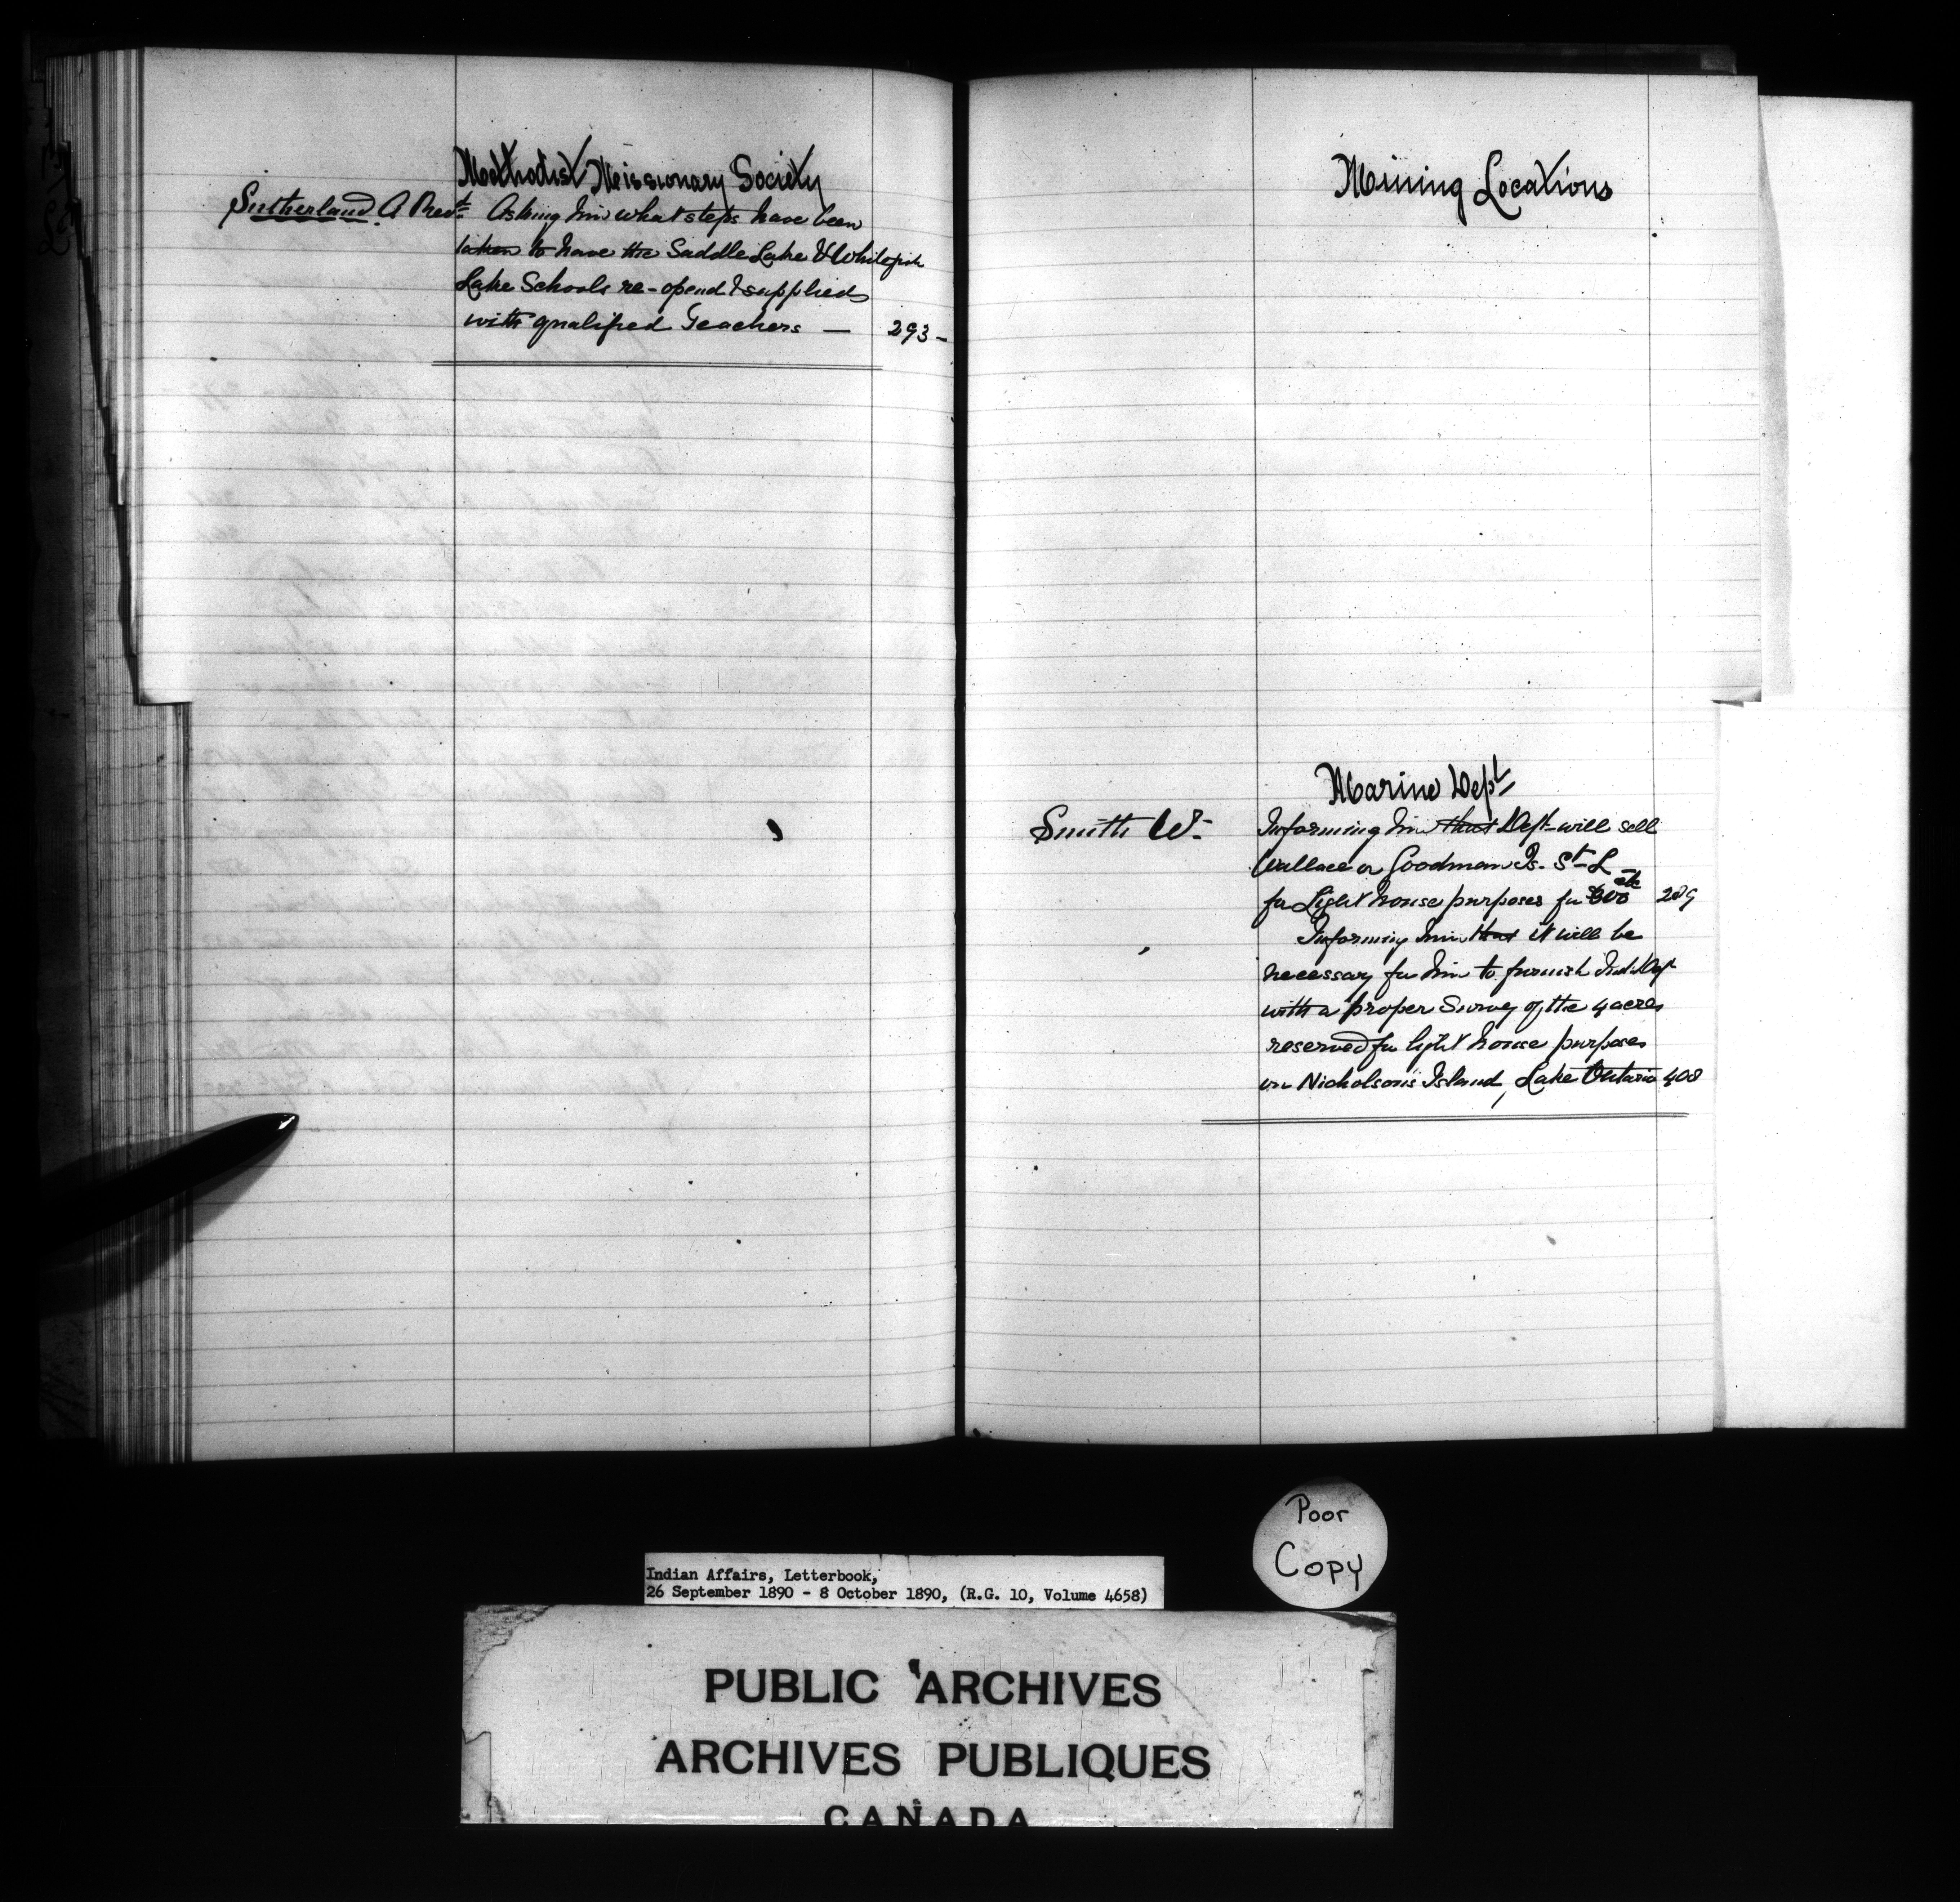 Methodist Missionary Society
Sutherland A Revd Asking him what steps have been
taken to have the Saddle Lake & Whitefish
Lake Schools re-opend & supplied
with qualified Teachers — 293 -
Mining Locations
Marine Dept
Smith W. Informing him that Dept will sell
Wallace or Goodman Is. St L
for Light house purposes for 289
Informing him that it will be
necessary for him to furnish Ind. Dept
with a proper Survey of the 4 acres
reserved for light house purposes
on Nicholson's Island, Lake Ontario 408
Poor
Copy
Indian Affairs, Letterbook,
26 September 1890 - 8 October 1890, (R.G. 10, Volume 4658)
PUBLIC ARCHIVES
ARCHIVES PUBLIQUES
CANADA